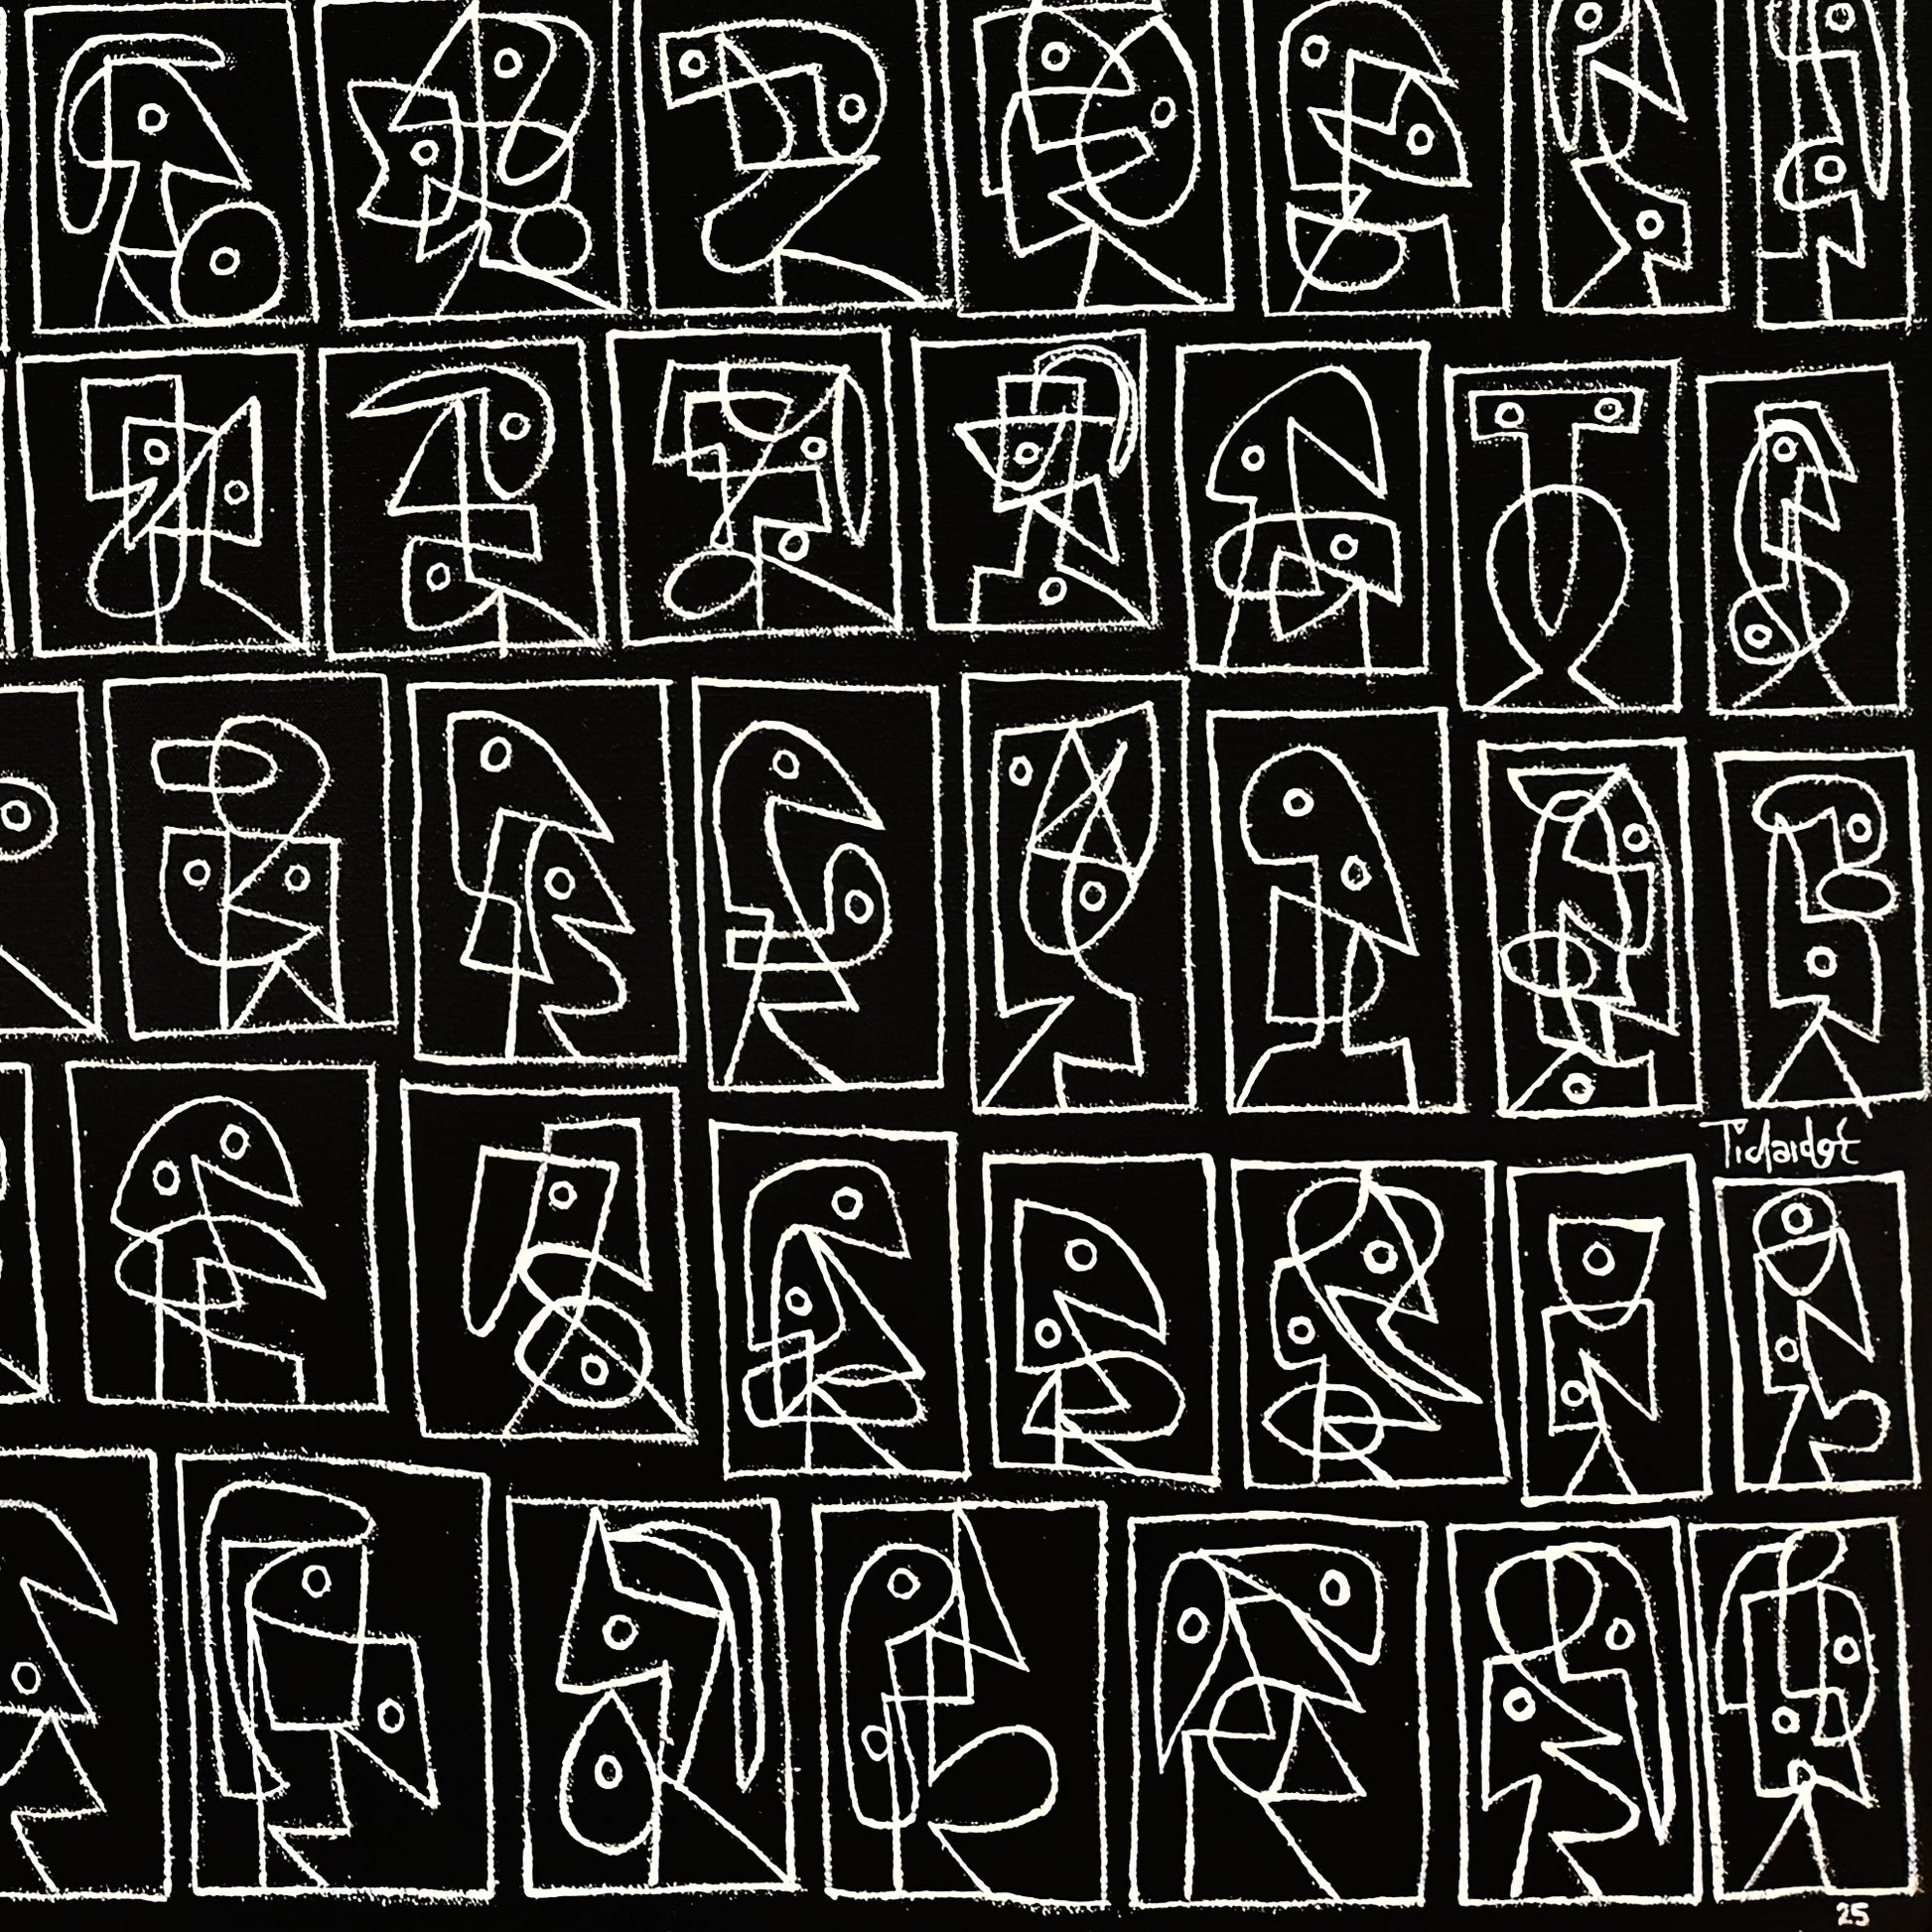 Tichardot
25